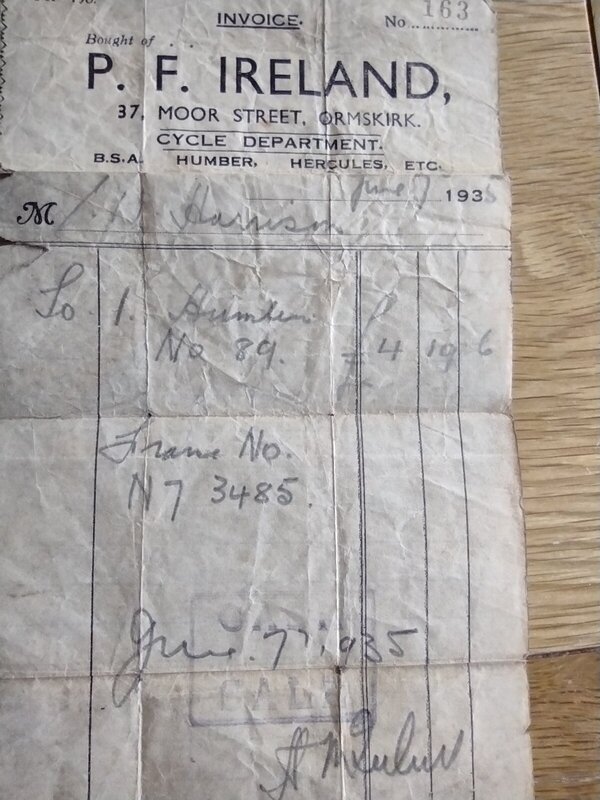 INVOICE.
No 163
Bought of . .
P. F. IRELAND,
37, MOOR STREET, ORMSKIRK.
CYCLE DEPARTMENT.
B.S.A. HUMBER, HERCULES, ETC.
June 7 1935
M Harrison
To 1. Humber
No 89. £ 4 19 6
Frame No.
N7 3485.
CASH
June. 7th 1935
SALE